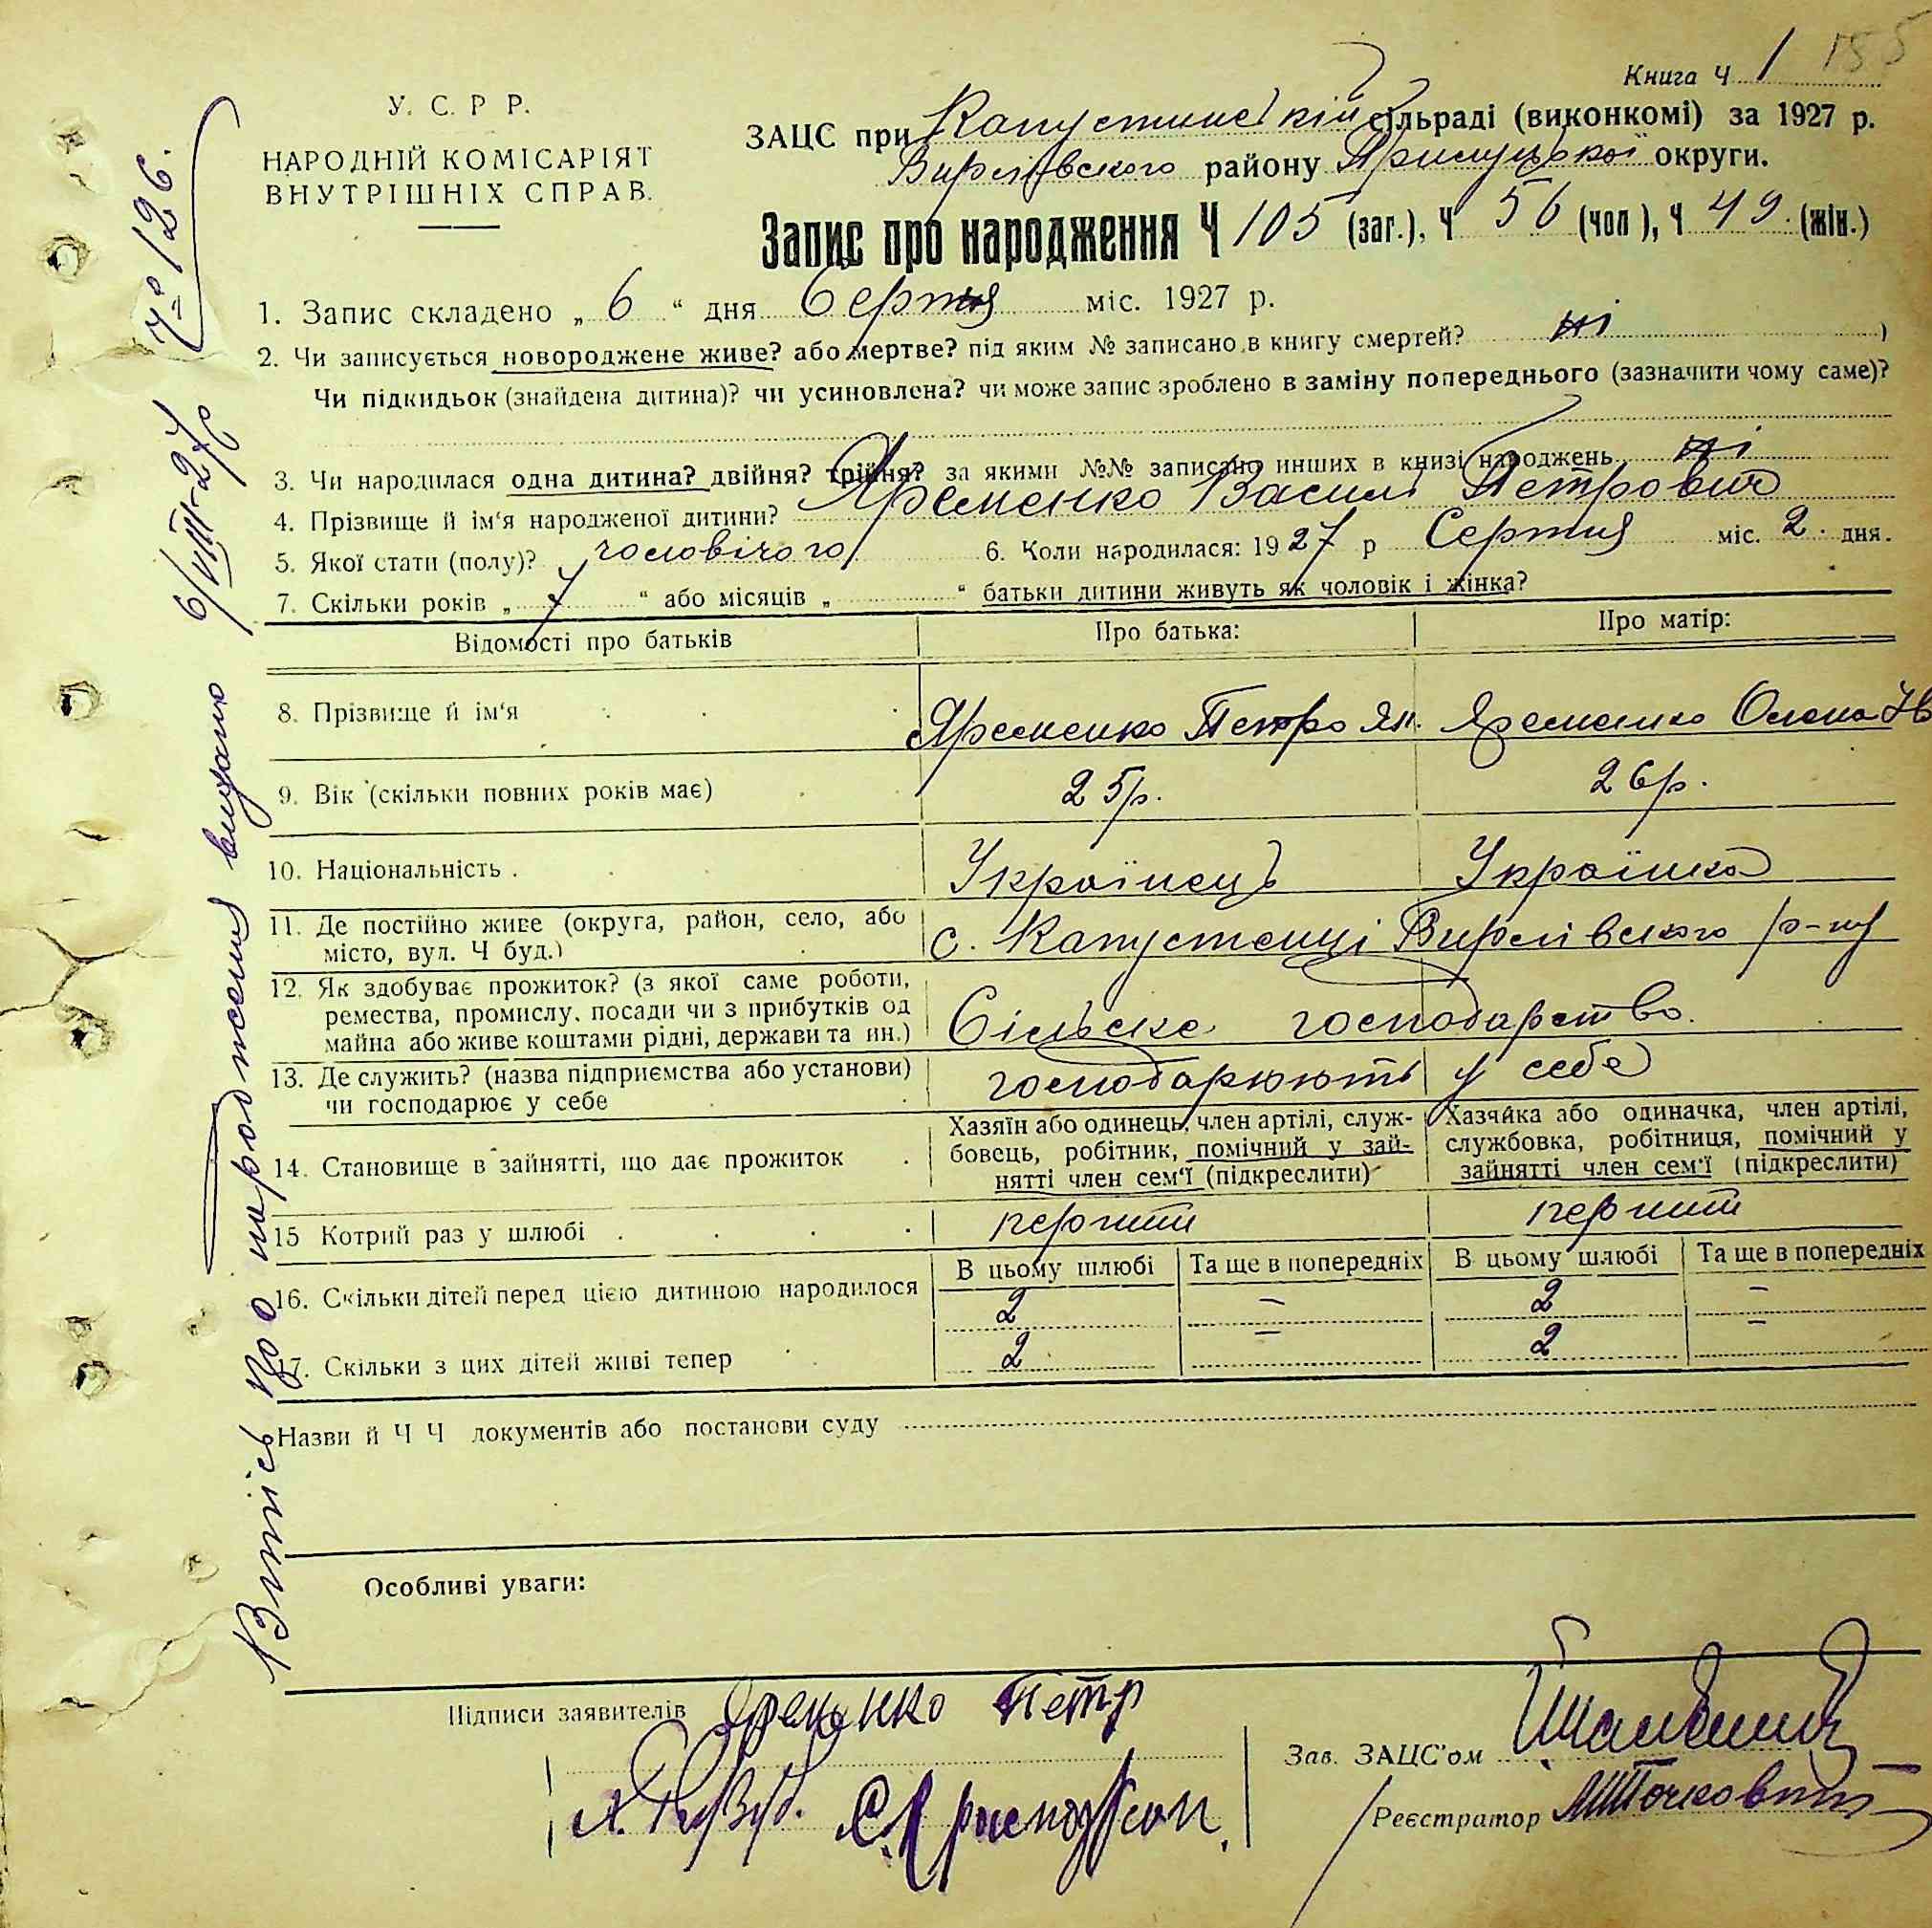 Книга Ч 1 155
У. С. Р Р.
НАРОДНІЙ КОМІСАРІЯТ
ВНУТРІШНІХ СПРАВ.
ЗАЦС при Капустинській сільраді (виконкомі) за 1927 р.
Вирлівського району Прилуцької округи.
Запис про народження Ч 105 (заг.), Ч 56 (чол), Ч 49. (жін.)
1. Запис складено „ 6 “ дня Серпня міс. 1927 р.
2. Чи записується новороджене живе? або мертве? під яким № записано в книгу смертей? ні )
Чи підкидьок (знайдена дитина)? чи усиновлена? чи може запис зроблено в заміну попереднього (зазначити чому саме)?
3. Чи народилася одна дитина? двійня? трійня? за якими №№ записано инших в книзі народжень ні
4. Прізвище й ім‘я народженої дитини? Яременко Василь Петрович
5. Якої стати (полу)? чоловічого 6. Коли народилася: 1927 р Серпня міс. 2. дня.
7. Скільки років „ 7 “ або місяців „ “ батьки дитини живуть як чоловік і жінка?
Відомості про батьків Про батька: Про матір:
8. Прізвище й ім‘я Яременко Петро Як. Яременко Олена Ів
9. Вік (скільки повних років має) 25р. 26р.
10. Національність . Українець Українка
11. Де постійно живе (округа, район, село, або
місто, вул. Ч буд.) с. Капустенці Вирлівського р-ну
12. Як здобуває прожиток? (з якої саме роботи,
ремества, промислу, посади чи з прибутків од
майна або живе коштами рідні, держави та ин.) Сільске господарство.
13. Де служить? (назва підприємства або установи)
чи господарює у себе господарюють у себе
14. Становище в зайнятті, що дає прожиток
Хазяїн або одинець, член артілі, служ-
бовець, робітник, помічний у зай-
нятті член сем‘ї (підкреслити)
Хазяйка або одиначка, член артілі,
службовка, робітниця, помічний у
зайнятті член сем‘ї (підкреслити)
15 Котрий раз у шлюбі перший перший
В цьому шлюбі Та ще в попередніх В цьому шлюбі Та ще в попередніх
16. Скільки дітей перед цією дитиною народилося 2 – 2 –
17. Скільки з цих дітей живі тепер 2 – 2 –
Назви й Ч Ч документів або постанови суду
Особливі уваги:
Підписи заявителів Яременко Петр
Зав. ЗАЦС‘ом
Реєстратор
Витпісь про народження видано 6/VIII-27р № 126.